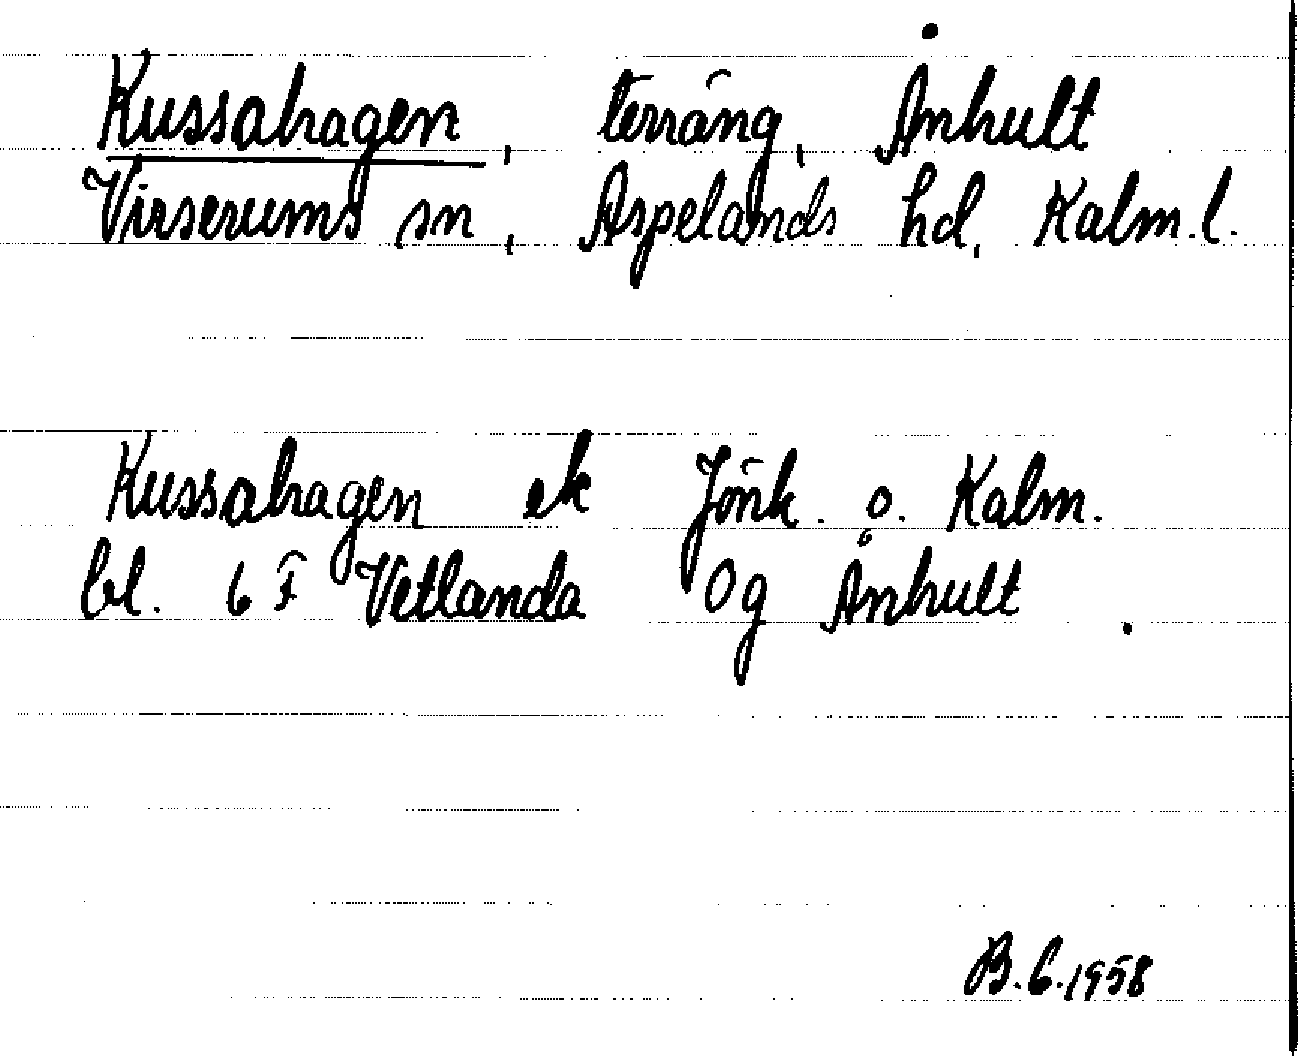 Kussahagen, terräng, Ånhult
Virserums sn, Aspelands hd, Kalm. l.
Kussahagen ek Jönk. o. Kalm.
bl. 6 F Vetlanda 0g Ånhult.
B.G. 1958